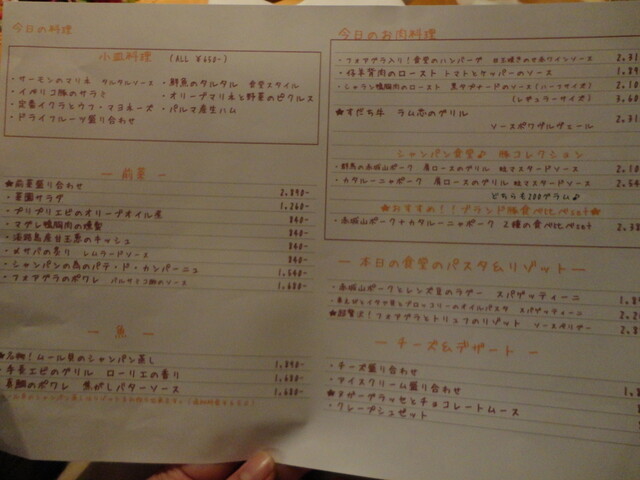 今日の料理
小皿料理 (ALL ¥650-)
・サーモンのマリネ タルタルソース
・イベリコ豚のサラミ
・定番イクラとウフ・マヨネーズ
・ドライフルーツ盛り合わせ
・鮮魚のタルタル 食堂スタイル
・オリーブマリネと野菜のピクルス
・パルマ産生ハム
― 前菜 ―
★前菜盛り合わせ 2,890-
・菜園サラダ 1,260-
・プリプリエビのオリーブオイル煮 840-
・マグレ鴨胸肉の燻製 840-
・淡路島産甘玉葱のキッシュ 840-
・メサバの炙り ラムラードソース 840-
・シャンパンの為のパテ・ド・カンパーニュ 1,540-
・フォアグラのポワレ バルサミコ酢のソース 1,680-
― 魚 ―
★名物!ムール貝のシャンパン蒸し 1,890-
・手長エビのグリル ローリエの香り 1,680-
・真鯛のポワレ 焦がしバターソース 1,680-
今日のお肉料理
・フォアグラ入り!食堂のハンバーグ 目玉焼きのせ赤ワインソース
・仔羊背肉のロースト トマトとケッパーのソース
・シャラン鴨胸肉のロースト 黒マスタードのソース(ハーフサイズ)
(レギュラーサイズ)
★すだち牛 ラム芯のグリル
ソースボワヴルヴェール
シャンパン食堂♪ 豚コレクション
・群馬の赤城山ポーク 肩ロースのグリル 粒マスタードソース
・カタルーニャポーク 肩ロースのグリル 粒マスタードソース
どちらも200グラム♪
★おすすめ!!ブランド豚食べ比べset★
・赤城山ポーク+カタルーニャポーク 2種の食べ比べset
― 本日の食堂のパスタ&リゾット ―
・赤城山ポークとレンズ豆のラグー スパゲッティーニ
・真ダコとイカや葉とブロッコリーのオイルパスタ スパゲッティーニ
★超贅沢!フォアグラとトリュフのリゾット ソースペリグー
― チーズ&デザート ―
・チーズ盛り合わせ
・アイスクリーム盛り合わせ
★ヌガーグラッセとチョコレートムース
・クレープシュゼット